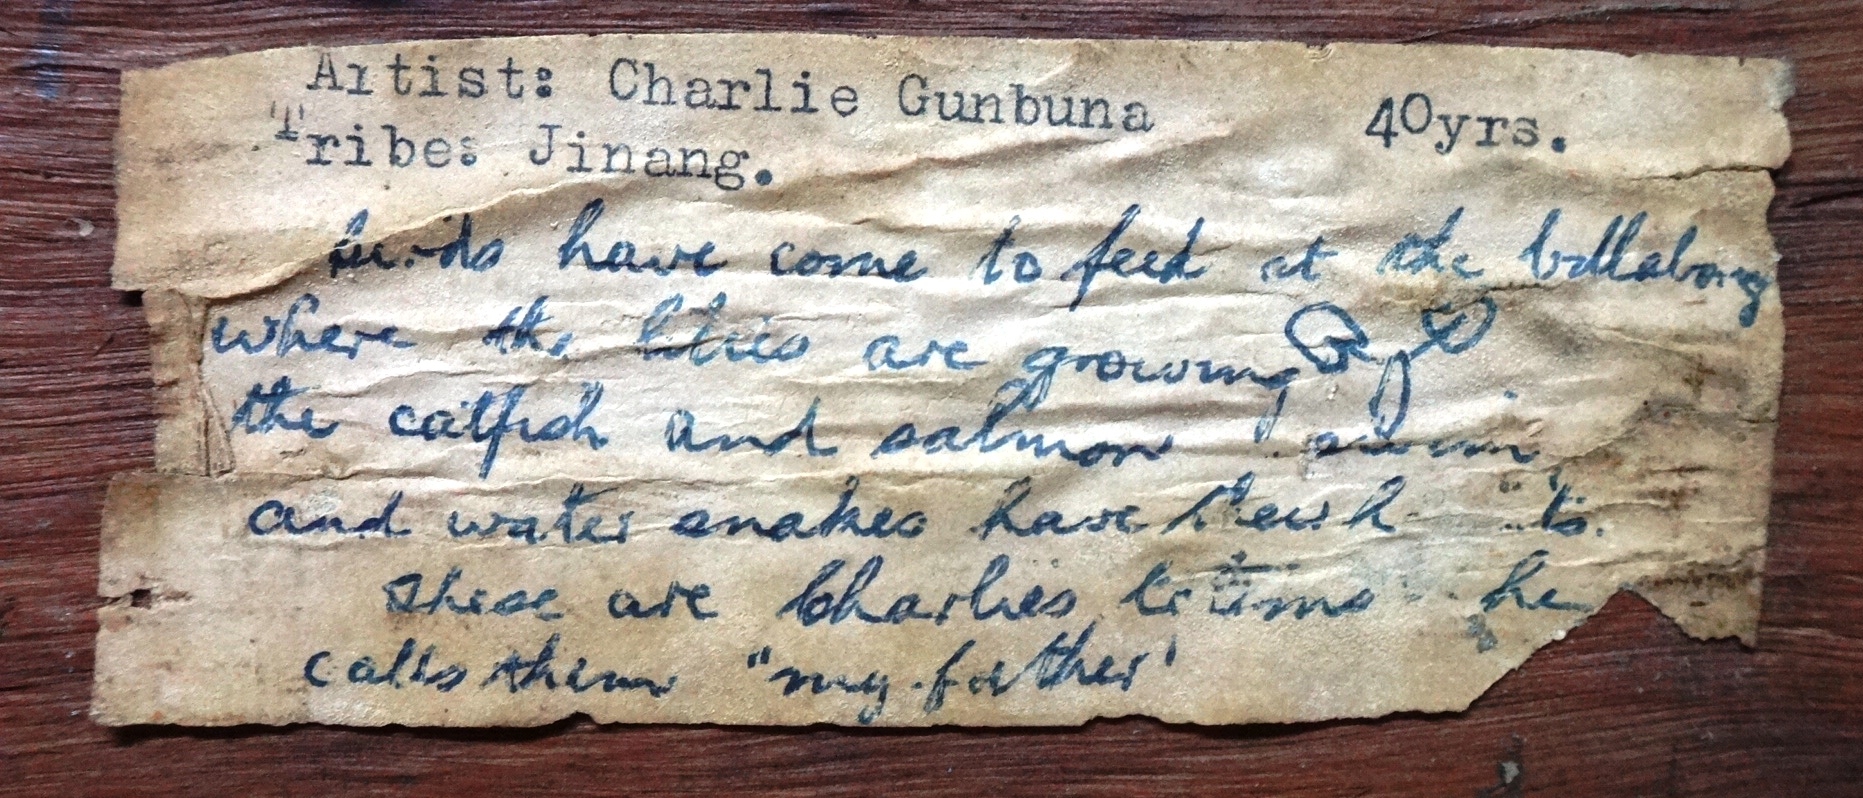 Artist: Charlie Gunbuna 40yrs.
Tribe: Jinang.
birds have come to feed at the billabong
where the lilies are growing
the catfish and salmon swim
and water snakes have their
These are Charlies totems he
calls them "my father'